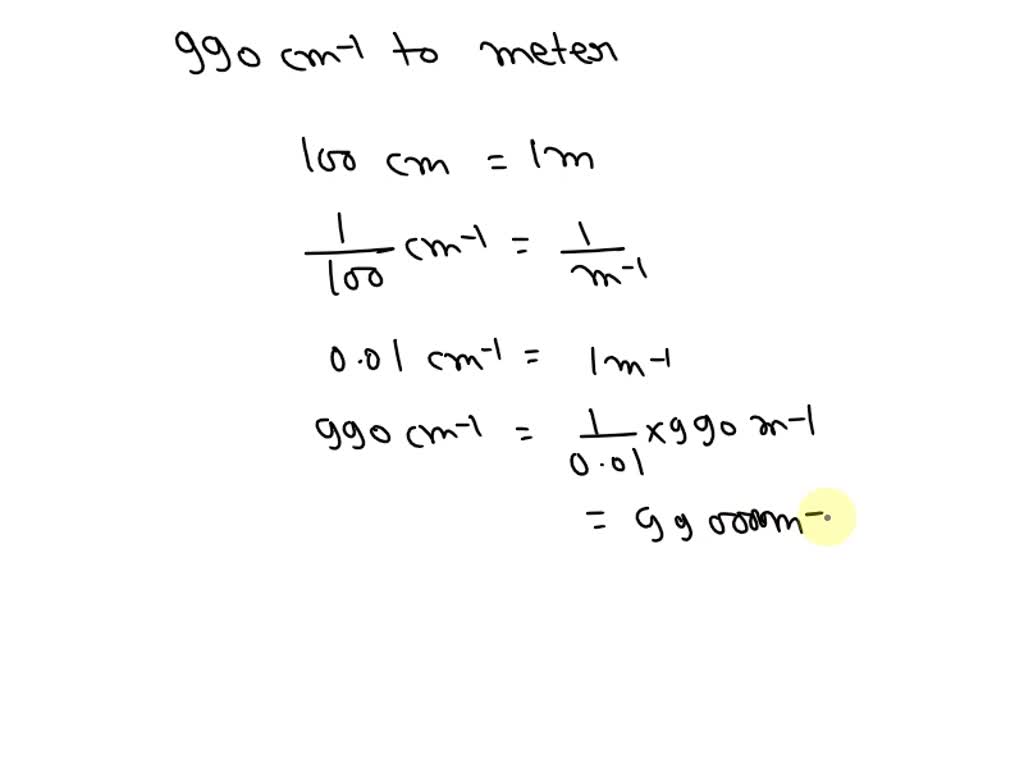 990 cm⁻¹ to meter
100 cm = 1m
1/100 cm⁻¹ = 1/m⁻¹
0.01 cm⁻¹ = 1m⁻¹
990 cm⁻¹ = 1/0.01 × 990 m⁻¹
= 99000m⁻